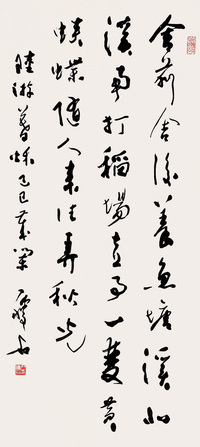 舍前舍後養魚塘溪北
溪南打稻場喜事一雙黃
蛺蝶隨人來往弄秋光
陸游暮秋己巳